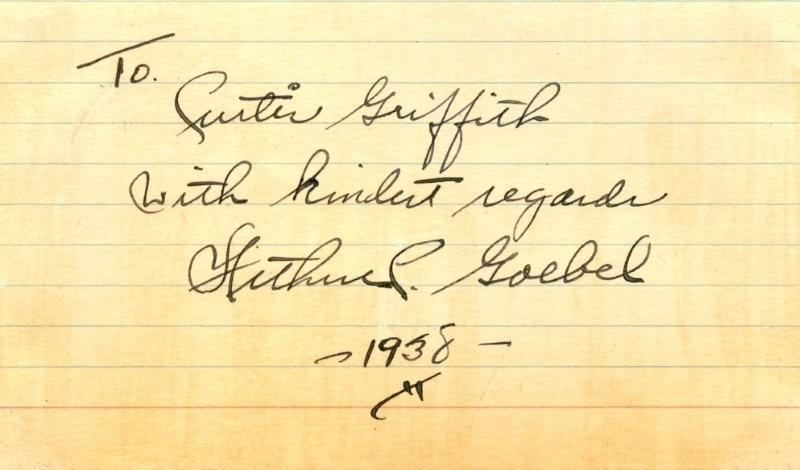 To.
Curtis Griffith
with kindest regards
Arthur C. Goebel
- 1938 -